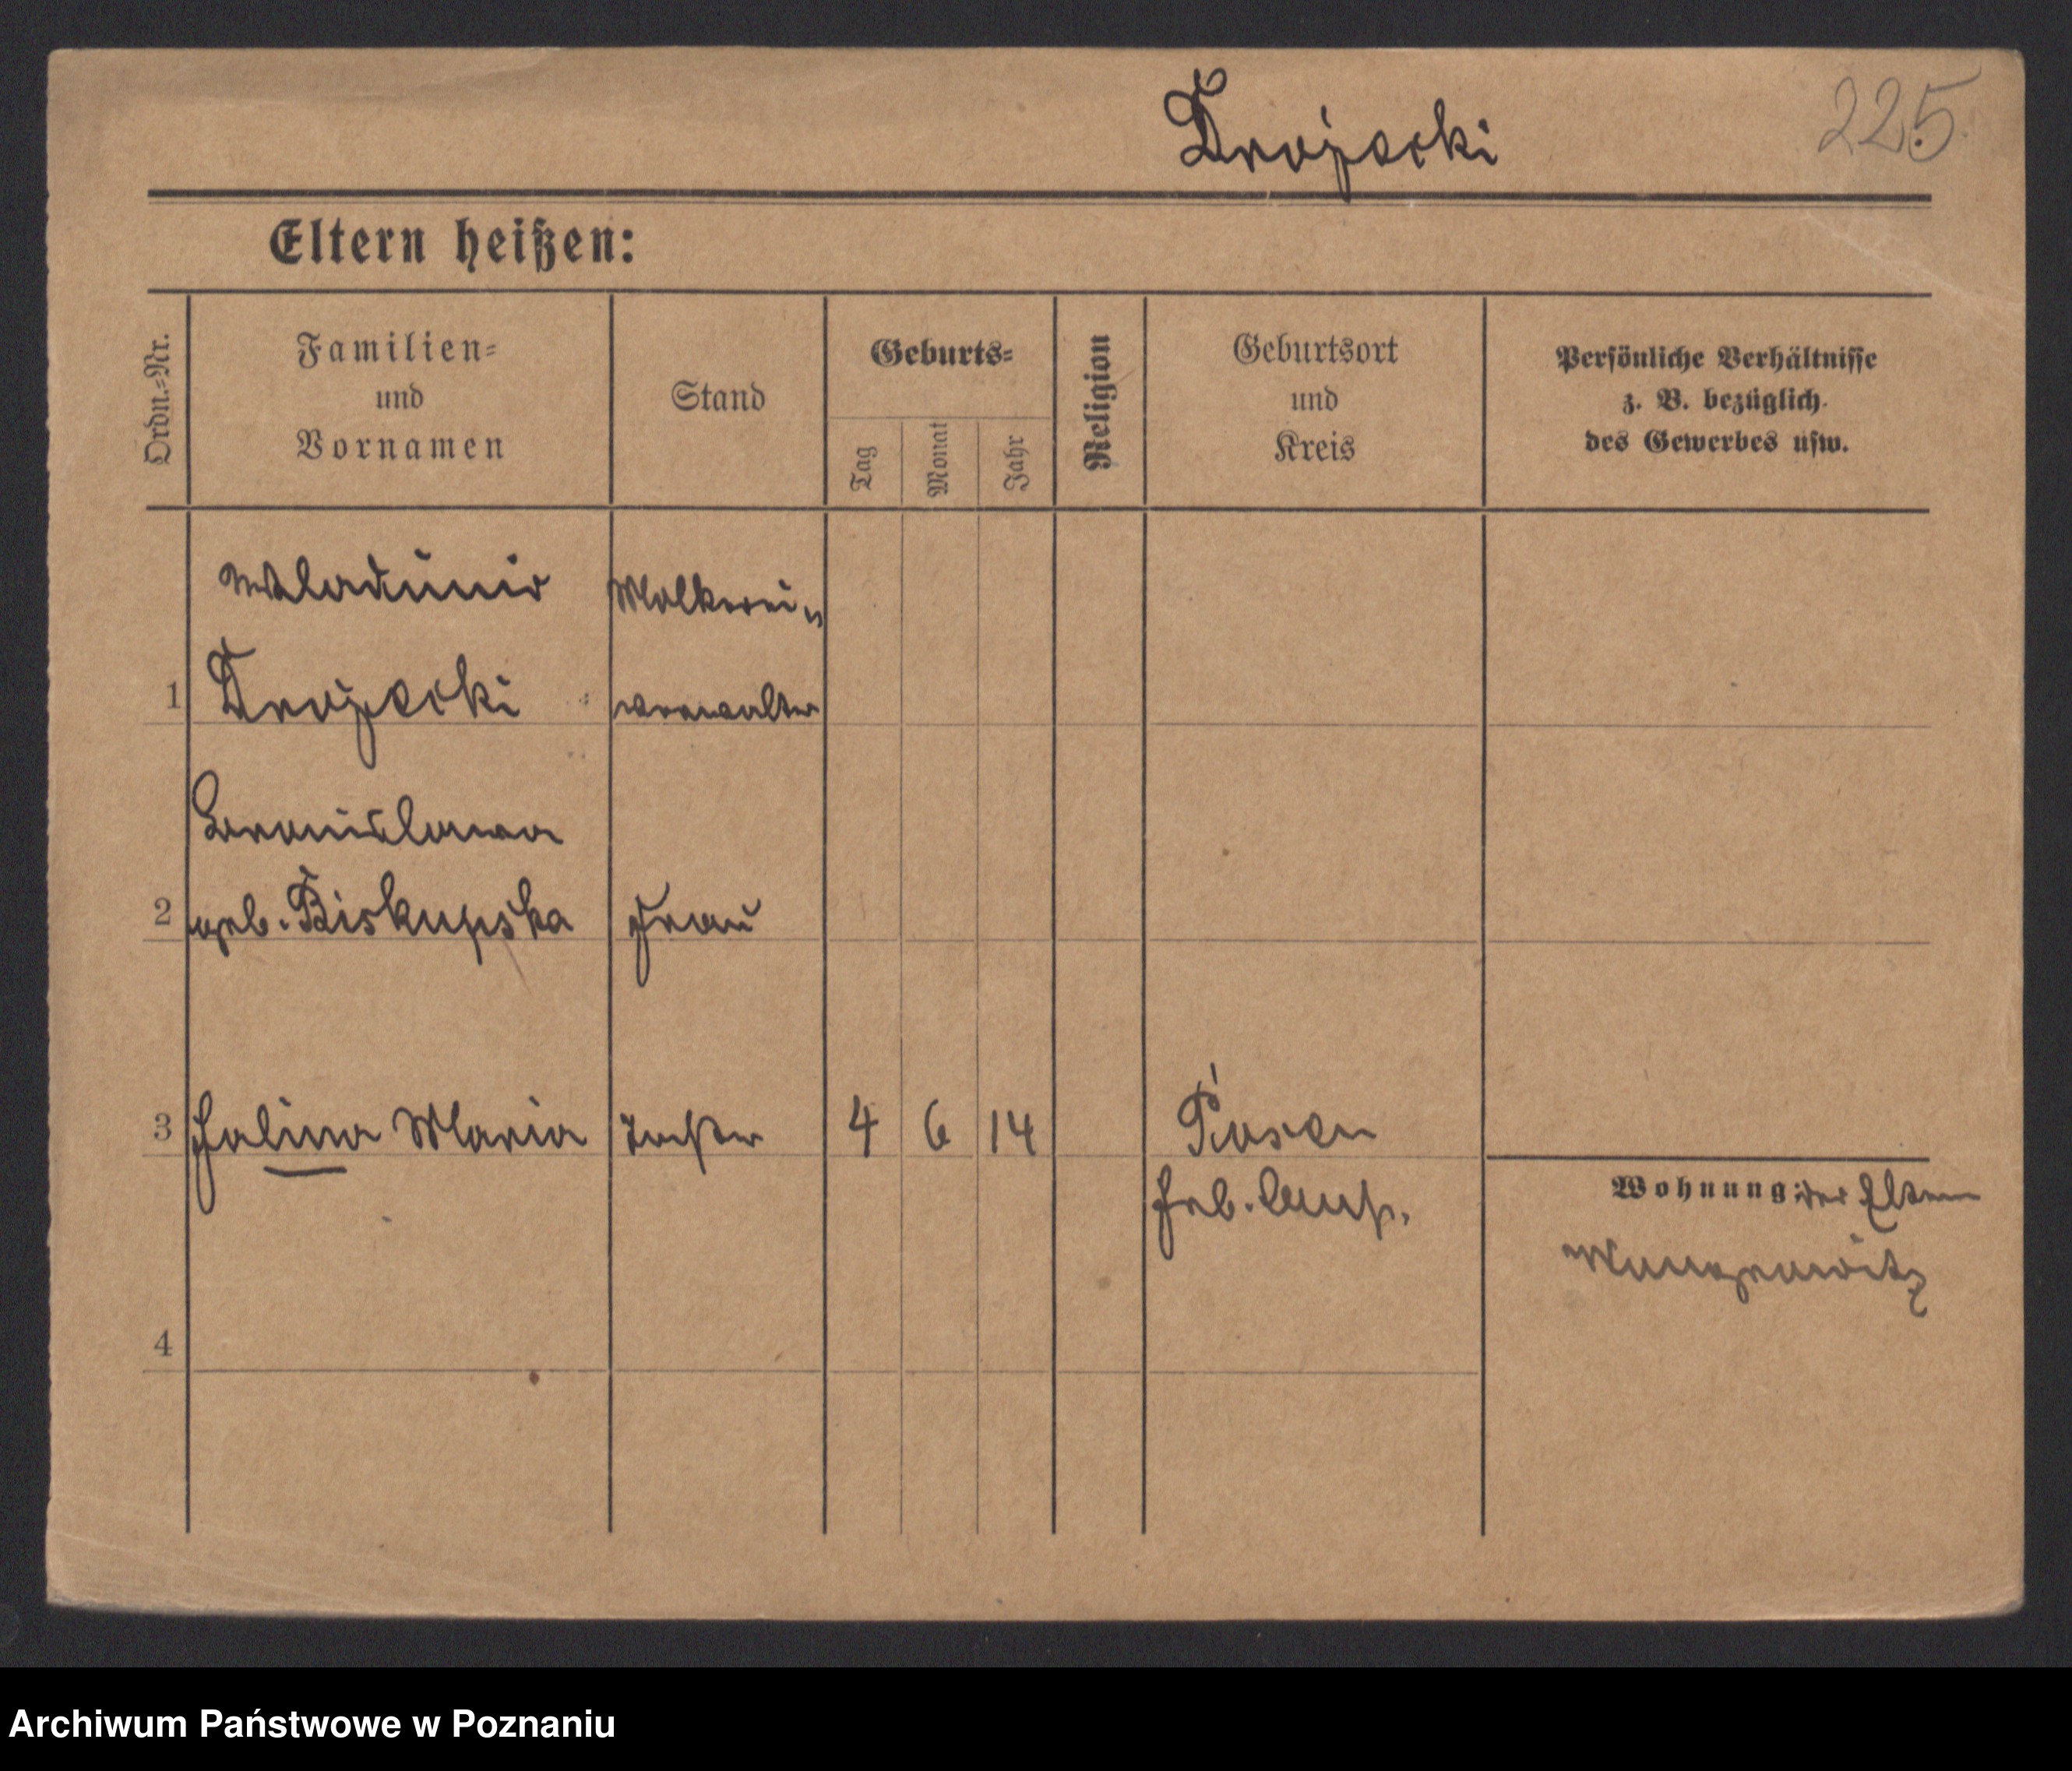 Drojecki
225
Eltern heißen:
Ordn.-Nr.
Familien-
und
Vornamen
Stand
Geburts-
Tag
Monat
Jahr
Religion
Geburtsort
und
Kreis
Persönliche Verhältnisse
z. B. bezüglich
des Gewerbes usw.
Wladimir
Molkerei-
1 Drojecki
verwalter
Bronislawa
2 geb. Biskupska Frau
3 Halina Maria Tochter 4 6 14 Posen
Wohnung: der Eltern
4
Archiwum Państwowe w Poznaniu